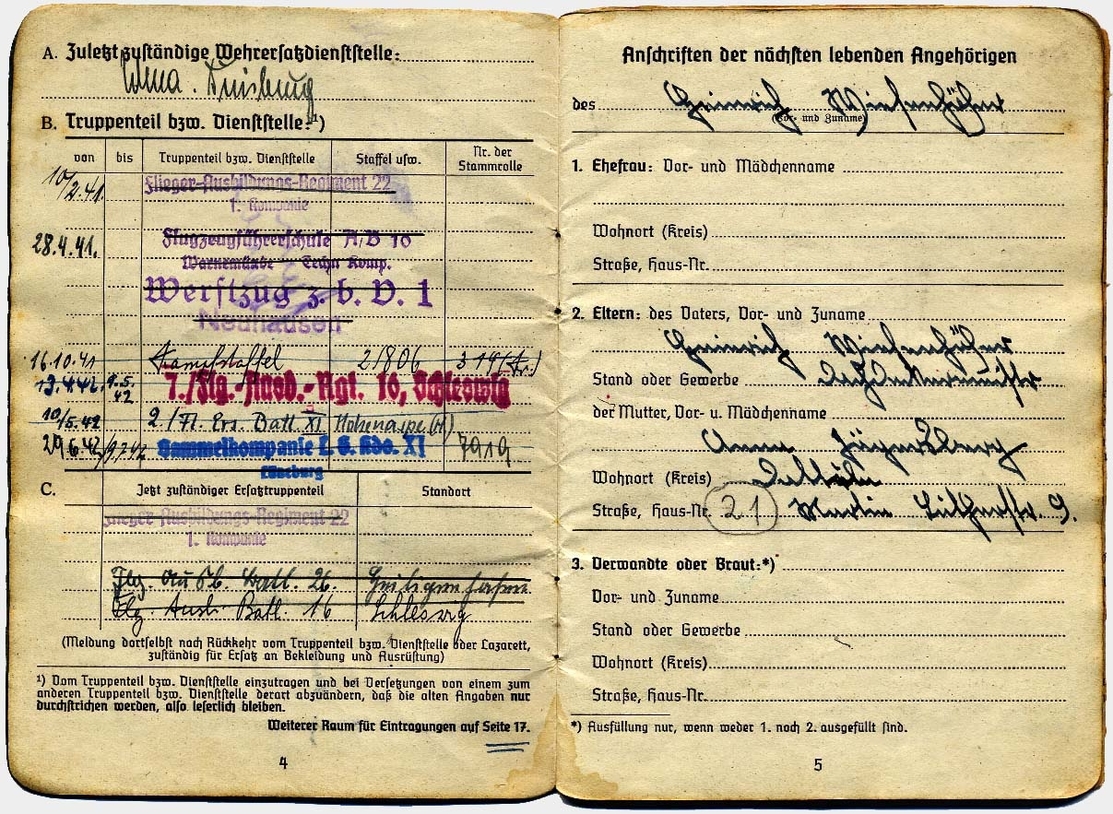 A. Zuletzt zuständige Wehrersatzdienststelle:
Wma. Duisburg
B. Truppenteil bzw. Dienststelle:¹)
von bis Truppenteil bzw. Dienststelle Staffel usw. Nr. der Stammrolle
10/2.41. Flieger-Ausbildungs-Regiment 22
1. Kompanie
28.4.41. Flugzeugführerschule A/B 10
Warnemünde Techn Komp.
Werftzug z. b. V. 1
Neuhausen
16.10.41 Kampfstaffel 2/806
13.4.42. 9.5.42 7./Flg.-Ausb.-Rgt. 16, Schleswig
10/5.42 2./Fl. Ers. Batl. XI
29.6.42 Sammelkompanie L. G. Kdo. XI 7919
Lüneburg
C. Jetzt zuständiger Ersatztruppenteil Standort
Flieger-Ausbildungs-Regiment 22
1. Kompanie
Flg. Ausb. Batl. 26. Heiligenhafen
Flg. Ausb. Batl. 16 Schleswig
(Meldung dortselbst nach Rückkehr vom Truppenteil bzw. Dienststelle oder Lazarett,
zuständig für Ersatz an Bekleidung und Ausrüstung)
¹) Vom Truppenteil bzw. Dienststelle einzutragen und bei Versetzungen von einem zum
anderen Truppenteil bzw. Dienststelle derart abzuändern, daß die alten Angaben nur
durchstrichen werden, also leserlich bleiben.
Weiterer Raum für Eintragungen auf Seite 17.
4
Anschriften der nächsten lebenden Angehörigen
des Heinrich Wiesenhöfer
(Vor- und Zuname)
1. Ehefrau: Vor- und Mädchenname
Wohnort (Kreis)
Straße, Haus-Nr.
2. Eltern: des Vaters, Vor- und Zuname
Heinrich Wiesenhöfer
Stand oder Gewerbe
der Mutter, Vor- u. Mädchenname
Anna
Wohnort (Kreis)
Straße, Haus-Nr. 21 Martin Lutherstr. 9.
3. Verwandte oder Braut:*)
Vor- und Zuname
Stand oder Gewerbe
Wohnort (Kreis)
Straße, Haus-Nr.
*) Ausfüllung nur, wenn weder 1. noch 2. ausgefüllt sind.
5